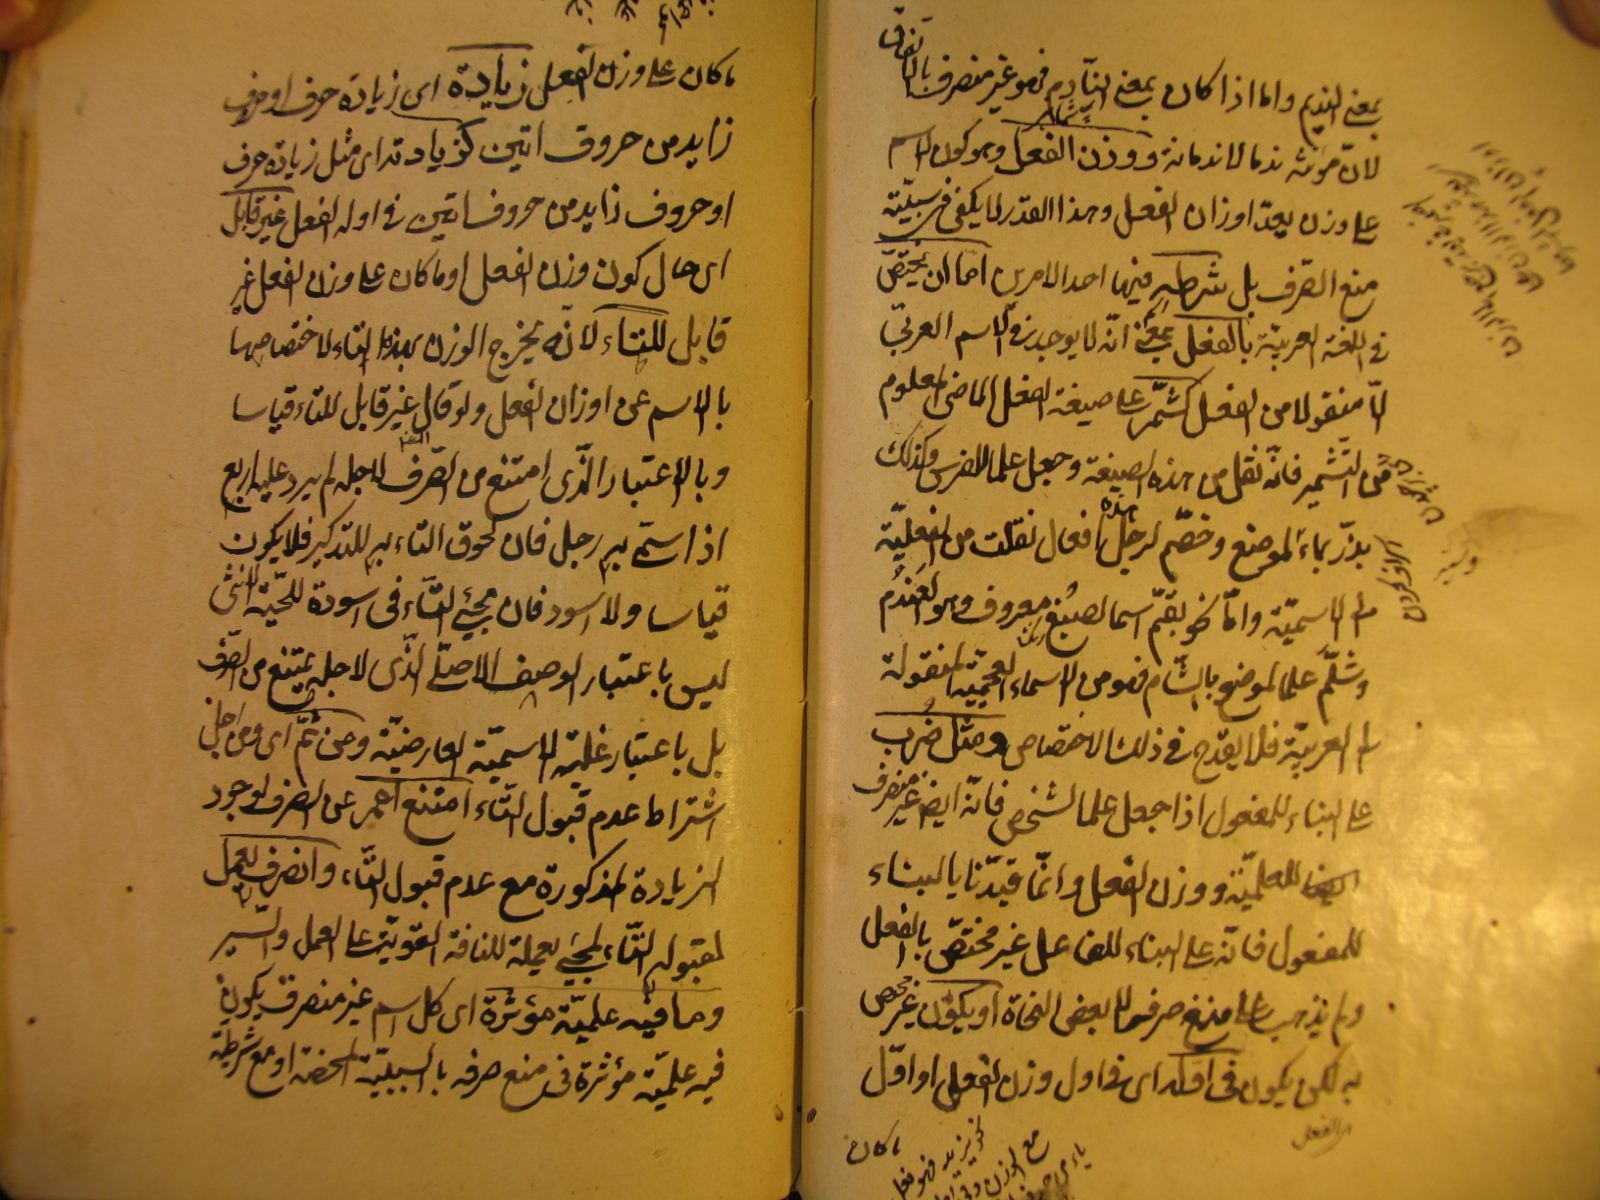 بمعنى النديم واما اذا كان بمعنى النادم فهو غير منصرف بالاتفاق
لان مؤنثه ندما لا ندمانة ووزن الفعل وهو كون الاسم
على وزن يعد اوزان الفعل وهذا القدر لا يكفى فى سببية
منع الصرف بل شرطه فيها احد الامرين اما ان يختص
فى اللغة العربية بالفعل بمعنى انه لا يوجد فى الاسم العربى
الا منقولا من الفعل كشمر على صيغة الفعل الماضى المعلوم
من التشمير فانه نقل من هذه الصيغة وجعل علما للفرس وكذلك
بذر بماء لموضع وخضم لرجل هذه افعال نقلت من الفعلية
الى الاسمية واما نحو بقم اسما لصبغ معروف وهو العندم
وشلم علما لموضع بالشام فهو من الاسماء العجمية المنقولة
الى العربية فلا يقدح فى ذلك الاختصاص ومثل ضرب
على البناء للمفعول اذا جعل علما لشخص فانه ايض غير منصرف
للعلمية ووزن الفعل وانما قيدنا بالبناء
للمفعول فانه على البناء للفاعل غير مختص بالفعل
ولم يذهب الى منع صرفه الا بعض النحاة او يكون غير مختص
به لكن يكون فى اوله اى فى اول وزن الفعل او اول
ما كان
ما كان على وزن الفعل زيادة اى زيادة حرف او حرف
زايد من حروف اتين كزيادته اى مثل زيادة حرف
او حروف زايد من حروف اتين فى اوله الفعل غير قابل
اى حال كون وزن الفعل او ما كان على وزن الفعل غير
قابل للتاء لانه يخرج الوزن بهذه التاء لاختصاصها
بالاسم عن اوزان الفعل ولو قال غير قابل للتاء قياسا
وبالاعتبار الذى امتنع من الصرف لاجله لم يرد عليه اربع
اذا سمى به رجل فان لحوق التاء به للتذكير فلا يكون
قياسا ولا اسود فان مجئ التاء فى اسودة للحية الانثى
ليس باعتبار الوصف الاصلى الذى لاجله يمتنع من الصرف
بل باعتبار غلبة الاسمية العارضية ومن ثم اى ومن اجل
اشتراط عدم قبول التاء امتنع احمر عن الصرف لوجود
الزيادة المذكورة مع عدم قبول التاء وانصرف يعمل
لقبوله التاء لمجئ يعملة للناقة القوية على العمل والسير
وما فيه علمية مؤثرة اى كل اسم غير منصرف يكون
فيه علمية مؤثرة فى منع صرفه بالسببية المحضة او مع شرطية